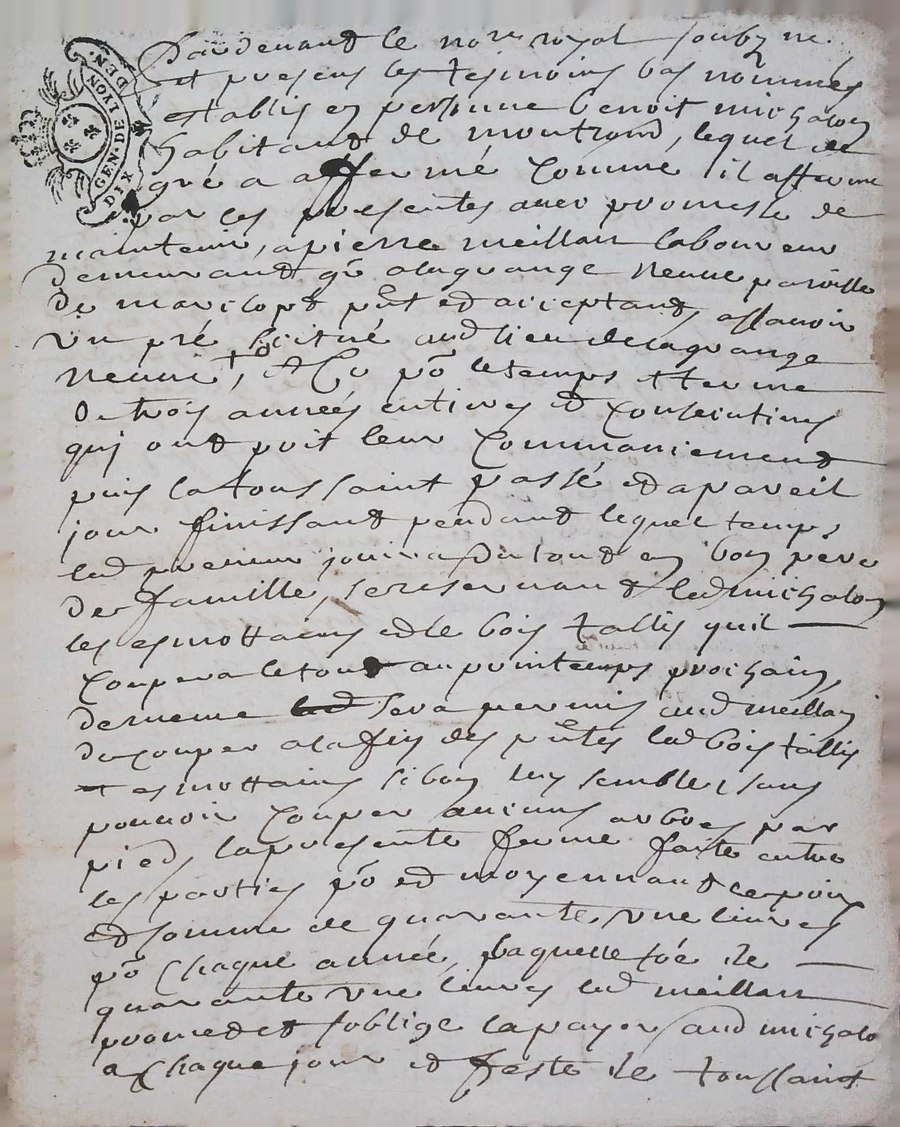 GEN. DE LYON
DIX DEN.
Pardevant le no.re royal soubz.né
et presens les tesmoins bas nommés
establis en personne benoit michalon
habitant de montrond, lequel de
gré a affermé comme il afferme
par ces presentes avec promesse de
maintenir, a pierre meillan laboureur
demeurant a la grange neuve paroisse
de marclopt pn̄t et acceptant, assavoir
un pré scitué aud lieu de la grange
neuve, et ce po le temps et terme
de trois années entieres et consecutives
qui ont prit leur commancement
puis la toussaint passé et a pareil
jour finissant pendant lequel temps
led preneur jouira du tout en bon père
de famille, se reservant led michalon
les esmottains et le bois tallis quil
coupera le tout au printemps prochain,
de meme sera permis aud meillan
de couper a la fin des pn̄tes led bois tallis
et esmottains si bon luy semble, sans
pouvoir couper aucuns arbres par
pied, la presente ferme faite entre
les parties po et moyennant le prix
et somme de quarante une livres
po chaque année, laquelle de
quarante une livres led meillan
promet et soblige la payer aud michalo
a chaque jour et feste de toussaint